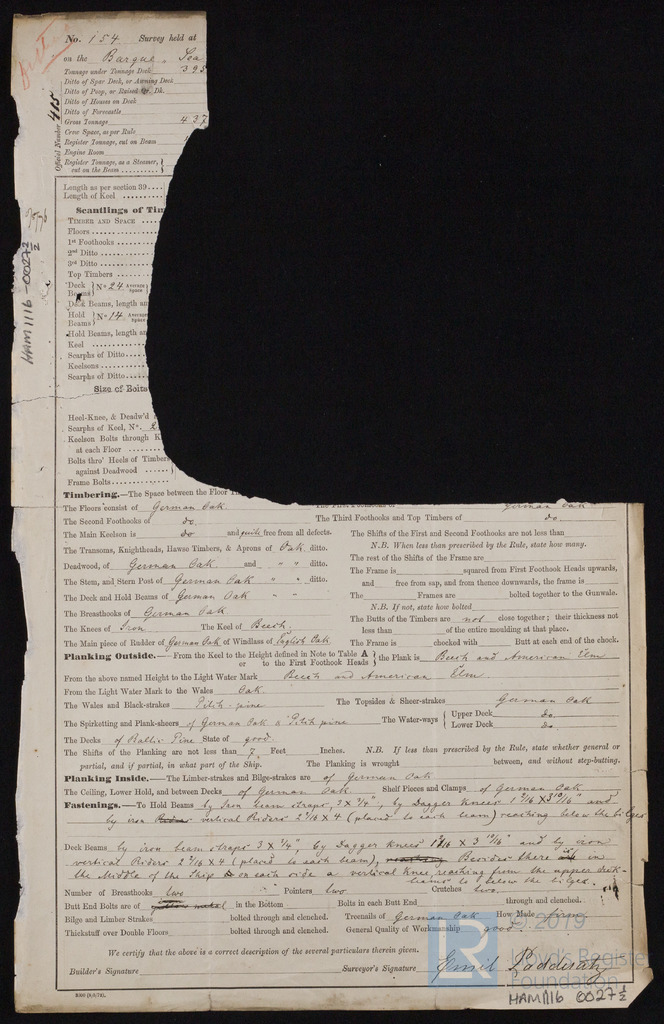 No. 154. Survey held at
on the Barque " Sea
Tonnage under Tonnage Deck 395
Ditto of Spar Deck, or Awning Deck
Ditto of Poop, or Raised Qr. Dk.
Ditto of Houses on Deck
Ditto of Forecastle
Gross Tonnage 437
Crew Space, as per Rule
Register Tonnage, cut on Beam
Engine Room
Register Tonnage, as a Steamer,
cut on the Beam
Official Number 415
HAM1116-0027 1/2
Length as per section 39
Length of Keel
Scantlings of Tim
TIMBER AND SPACE
Floors
1st Foothooks
2nd Ditto
3rd Ditto
Top Timbers
Deck Beams } No 24 Average Space
Deck Beams, length am
Hold Beams } No 14 Average Space
Hold Beams, length am
Keel
Scarphs of Ditto
Keelsons
Scarphs of Ditto
Size of Bolts
Heel-Knee, & Deadw'd
Scarphs of Keel, No. 2
Keelson Bolts through K
at each Floor
Bolts thro' Heels of Timber
against Deadwood
Frame Bolts
Timbering.—The Space between the Floor Ti
The Floors consist of German Oak German Oak
The Second Foothooks of do. The Third Foothooks and Top Timbers of do.
The Main Keelson is do and quite free from all defects. The Shifts of the First and Second Foothooks are not less than
N.B. When less than prescribed by the Rule, state how many.
The Transoms, Knightheads, Hawse Timbers, & Aprons of Oak ditto. The rest of the Shifts of the Frame are
Deadwood, of German Oak and " " ditto. The Frame is squared from First Foothook Heads upwards,
The Stem, and Stern Post of German Oak " " ditto. and free from sap, and from thence downwards, the frame is
The Deck and Hold Beams of German Oak " " The Frames are bolted together to the Gunwale.
The Breasthooks of German Oak N.B. If not, state how bolted
The Knees of Iron The Keel of Beech. The Butts of the Timbers are not close together; their thickness not
less than of the entire moulding at that place.
The Main piece of Rudder of German Oak of Windlass of English Oak. The Frame is chocked with Butt at each end of the chock.
Planking Outside.—From the Keel to the Height defined in Note to Table A or to the First Foothook Heads } the Plank is Beech and American Elm
From the above named Height to the Light Water Mark Beech and American Elm.
From the Light Water Mark to the Wales Oak.
The Wales and Black-strakes Pitch pine The Topsides & Sheer-strakes German Oak
The Spirketting and Plank-sheers of German Oak & Pitch pine The Water-ways { Upper Deck do
Lower Deck do.
The Decks of Baltic Pine State of good.
The Shifts of the Planking are not less than 7 Feet Inches. N.B. If less than prescribed by the Rule, state whether general or
partial, and if partial, in what part of the Ship. The Planking is wrought between, and without step-butting.
Planking Inside.—The Limber-strakes and Bilge-strakes are of German Oak
The Ceiling, Lower Hold, and between Decks of German Oak. Shelf Pieces and Clamps of German Oak
Fastenings.—To Hold Beams by Iron beam straps, 3 x 3/4", by Dagger Knees 1 9/16 x 3 10/16" and
by iron vertical Riders 2 9/16 x 4 (placed to each beam) reaching below the bilges
Deck Beams by iron beam straps 3 x 3/4", by Dagger Knees 1 9/16 x 3 10/16" and by iron
vertical Riders 2 9/16 x 4 (placed to each beam), Besides there in
the Middle of the Ship on each side a vertical knee, reaching from the upper deck-
beams to below the bilges.
Number of Breasthooks two Pointers two Crutches two
Butt End Bolts are of in the Bottom Bolts in each Butt End through and clenched.
Bilge and Limber Strakes bolted through and clenched. Treenails of German Oak How Made firm
Thickstuff over Double Floors bolted through and clenched. General Quality of Workmanship good.
We certify that the above is a correct description of the several particulars therein given.
Builder's Signature Surveyor's Signature Emil Padderatz
© 2019
LR
Lloyd's Register
Foundation
HAM1116 0027 1/2